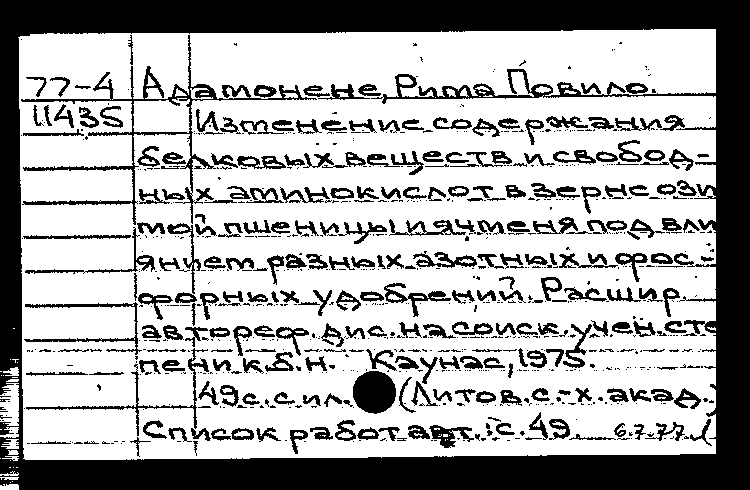 77-4 Адамонене, Рима Повило.
11435 Изменение содержания
белковых веществ и свобод-
ных аминокислот в зерне ози
мой пшеницы и ячменя под вли
янием разных азотных и фос-
форных удобрений. Расшир.
автореф. дис. на соиск. учен. сте
пени к.б.н. Каунас, 1975.
49с. с ил. (Литов. с.-х. акад.)
Список работ авт.: с. 49. 6.7.77